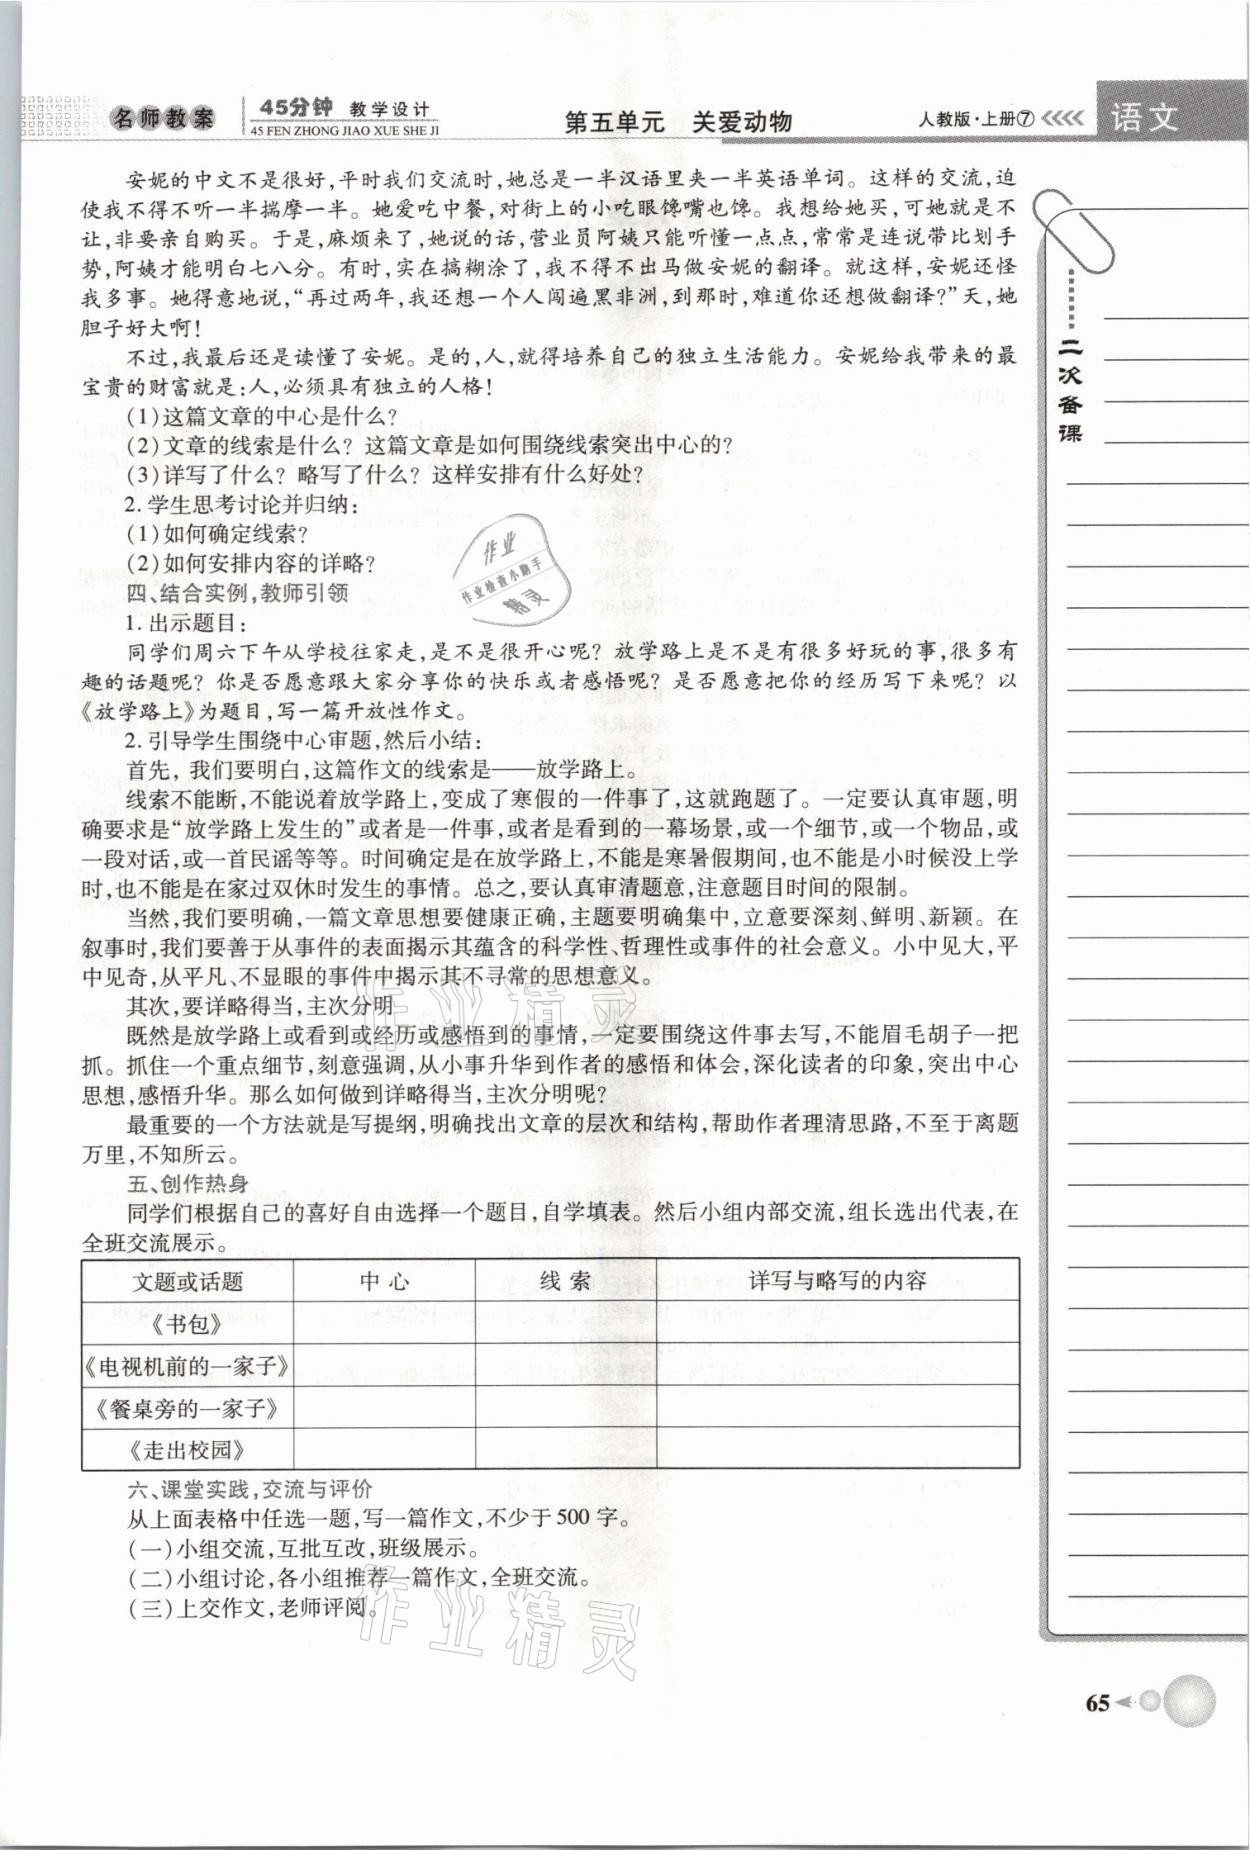 名师教案 45分钟 教学设计
45 FEN ZHONG JIAO XUE SHE JI
第五单元 关爱动物
人教版·上册⑦
语文
安妮的中文不是很好,平时我们交流时,她总是一半汉语里夹一半英语单词。这样的交流,迫
使我不得不听一半揣摩一半。她爱吃中餐,对街上的小吃眼馋嘴也馋。我想给她买,可她就是不
让,非要亲自购买。于是,麻烦来了,她说的话,营业员阿姨只能听懂一点点,常常是连说带比划手
势,阿姨才能明白七八分。有时,实在搞糊涂了,我不得不出马做安妮的翻译。就这样,安妮还怪
我多事。她得意地说,“再过两年,我还想一个人闯遍黑非洲,到那时,难道你还想做翻译?”天,她
胆子好大啊!
不过,我最后还是读懂了安妮。是的,人,就得培养自己的独立生活能力。安妮给我带来的最
宝贵的财富就是:人,必须具有独立的人格!
(1)这篇文章的中心是什么?
(2)文章的线索是什么? 这篇文章是如何围绕线索突出中心的?
(3)详写了什么? 略写了什么? 这样安排有什么好处?
2. 学生思考讨论并归纳:
(1)如何确定线索?
(2)如何安排内容的详略?
四、结合实例,教师引领
1. 出示题目:
同学们周六下午从学校往家走,是不是很开心呢? 放学路上是不是有很多好玩的事,很多有
趣的话题呢? 你是否愿意跟大家分享你的快乐或者感悟呢? 是否愿意把你的经历写下来呢? 以
《放学路上》为题目,写一篇开放性作文。
2. 引导学生围绕中心审题,然后小结:
首先, 我们要明白,这篇作文的线索是——放学路上。
线索不能断,不能说着放学路上,变成了寒假的一件事了,这就跑题了。一定要认真审题,明
确要求是“放学路上发生的”或者是一件事,或者是看到的一幕场景,或一个细节,或一个物品,或
一段对话,或一首民谣等等。时间确定是在放学路上,不能是寒暑假期间,也不能是小时候没上学
时,也不能是在家过双休时发生的事情。总之,要认真审清题意,注意题目时间的限制。
当然,我们要明确,一篇文章思想要健康正确,主题要明确集中,立意要深刻、鲜明、新颖。在
叙事时,我们要善于从事件的表面揭示其蕴含的科学性、哲理性或事件的社会意义。小中见大,平
中见奇,从平凡、不显眼的事件中揭示其不寻常的思想意义。
其次,要详略得当,主次分明
既然是放学路上或看到或经历或感悟到的事情,一定要围绕这件事去写,不能眉毛胡子一把
抓。抓住一个重点细节,刻意强调,从小事升华到作者的感悟和体会,深化读者的印象,突出中心
思想,感悟升华。那么如何做到详略得当,主次分明呢?
最重要的一个方法就是写提纲,明确找出文章的层次和结构,帮助作者理清思路,不至于离题
万里,不知所云。
五、创作热身
同学们根据自己的喜好自由选择一个题目,自学填表。然后小组内部交流,组长选出代表,在
全班交流展示。
文题或话题 中 心 线 索 详写与略写的内容
《书包》
《电视机前的一家子》
《餐桌旁的一家子》
《走出校园》
六、课堂实践,交流与评价
从上面表格中任选一题,写一篇作文,不少于 500 字。
(一)小组交流,互批互改,班级展示。
(二)小组讨论,各小组推荐一篇作文,全班交流。
(三)上交作文,老师评阅。
二次备课
65
作业
作业检查小助手
精灵
作业精灵
作业精灵